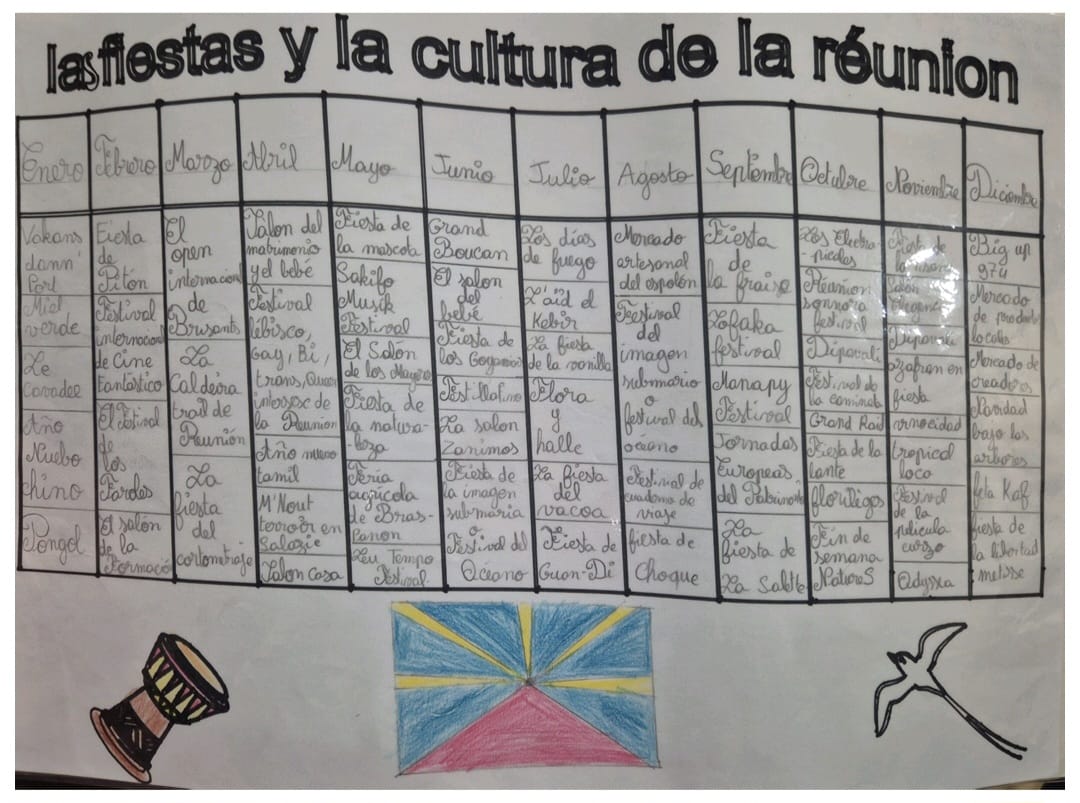 las fiestas y la cultura de la réunion
Enero
Febrero
Marozo
Abril
Mayo
Junio
Julio
Agosto
Septiembre
Octubre
Noviembre
Diciembre
Vakans
dann'
Port
Miel
verde
Le
cavadee
Año
Nuebo
chino
Pongol
Fiesta
de
Pitón
Festival
internacional
de Cine
Fantástico
El Festival
de
los
Faroles
El salón
de la
Formació
El
open
internacional
de
Brisants
La
Caldeira
trail de
Reunión
La
fiesta
del
cortometraje
Salon del
matrimonio
y el bebé
Festival
lébisco,
Gay, Bi,
trans, Queer
intersex de
la Reunion
Año nuevo
tamil
M'Nout
terroir en
Salazie
Salon Casa
Fiesta de
la mascota
Sakifo
Musik
Festival
El Salón
de los Mayores
Fiesta de
la natura-
-leza
Feria
agrícola
de Bras-
Panon
Leu Tempo
Festival
Grand
Boucan
El salon
del
bebé
Fiesta de
los Goyaviers
La salon
Zanimos
Fiesta de
la imagen
submaria
o
Festival del
Océano
Los días
de fuego
L'aïd el
Kebir
La fiesta
de la vanilla
Flora
y
halle
La fiesta
del
vacoa
Fiesta de
Guan-Di
Mercado
artesanal
del espolón
Festival
del
imagen
submario
o
festival del
océano
Festival de
cuaderno de
viaje
fiesta de
Choque
Fiesta
de
la fraise
Lofaka
festival
Manapy
Festival
Jornadas
Europeas
del Patrimonio
La
fiesta de
La Salette
Los Electro-
-picales
Réunion
sonnora
festival
Dipavali
Festival de
la caminata
Grand Raid
Fiesta de la
lante
florilèges
Fin de
semana
Natures
Salon
Elegance
Dipavali
azafran en
fiesta
tropical
loco
Festival
de la
pelicula
corzo
Odyssea
Big up
974
Mercado
de producto
locales
Mercado de
creadores
Navidad
bajo los
arbores
feta Kaf
fiesta de
la libertad
metisse